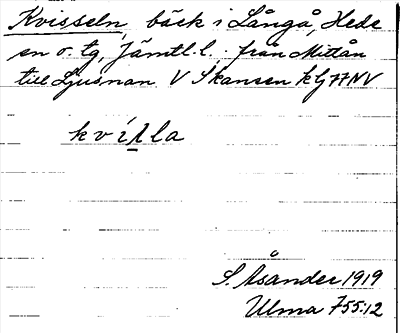 Kvisseln, bäck i Långå, Hede
sn o. tg, Jämtl. l. : från Mittån
till Ljusnan V Skansen kbj 77 NV
kvíʌla
S. Åsander 1919
Ulma 755:12